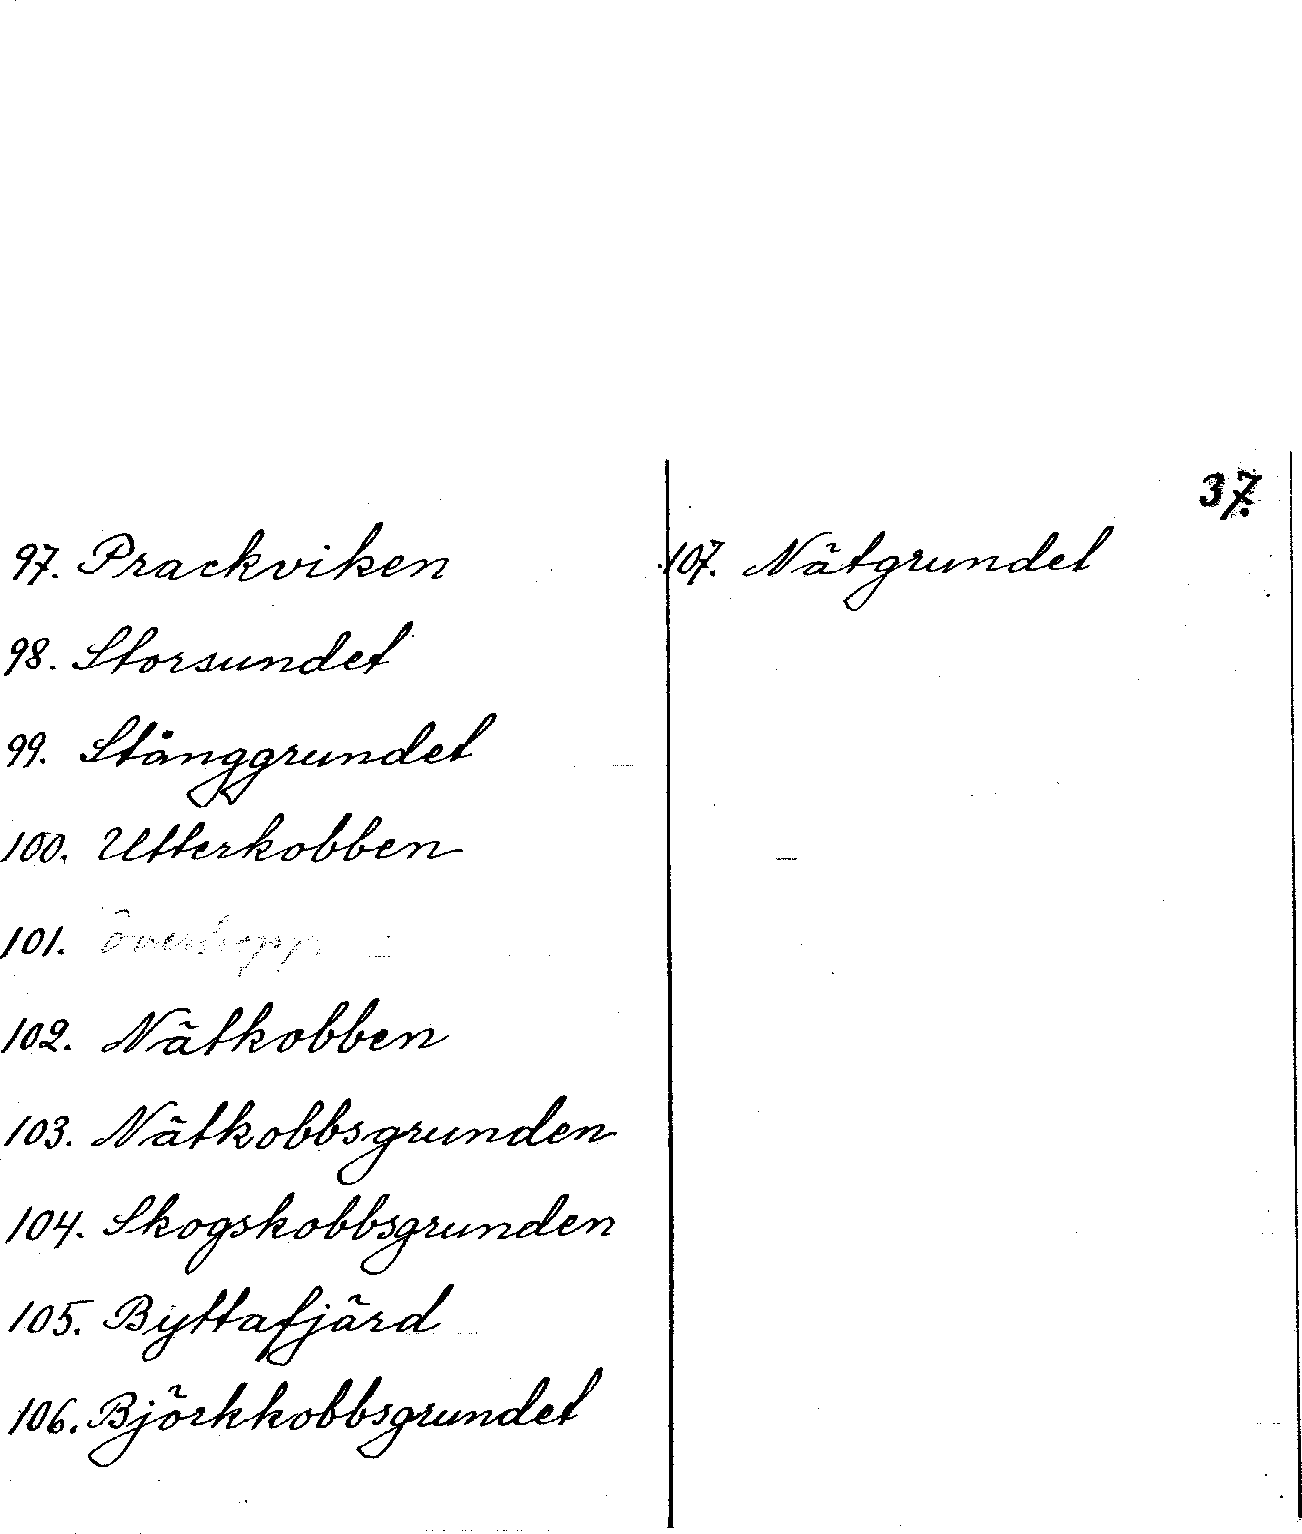 97. Prackviken
98. Storsundet
99. Stånggrundet
100. Utterkobben
101. överhopp
102. Nätkobben
103. Nätkobbsgrunden
104. Skogskobbsgrunden
105. Byttafjärd
106. Björkkobbsgrundet
37.
107. Nätgrundet